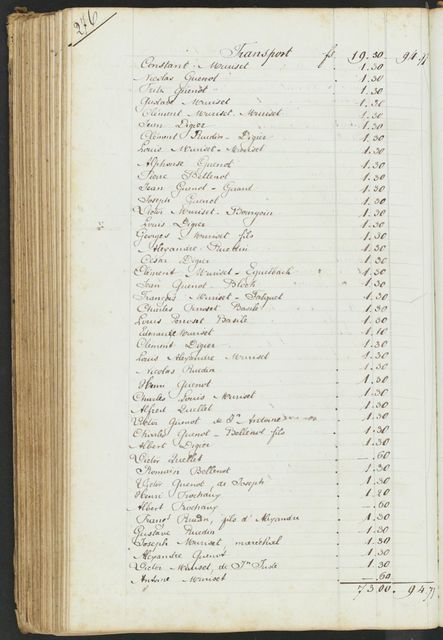 246
Transport fr. 19.30 94.77
Constant Muriset 1.30
Nicolas Guenot 1.30
Felix Guenot 1.30
Gustave Muriset 1.30
Clément Muriset-Muriset 1.30
Jean Digier 1.30
Clément Ruedin-Digier 1.30
Louis Muriset-Muriset 1.30
Alphonse Guenot 1.30
Pierre Bellenot 1.30
Jean Guenot-Girard 1.30
Joseph Guenot 1.30
Victor Muriset-Bourgoin 1.30
Louis Digier 1.30
Georges Muriset fils 1.30
Alexandre Ruedin 1.30
César Digier 1.30
Clément Muriset-Equelbach 1.30
Jean Guenot-Bloch 1.30
François Muriset-Falquet 1.30
Charles Perroset Basile 1.30
Louis Perroset Basile 1.30
Edouard Muriset 1.10
Clément Digier 1.30
Louis Alexandre Muriset 1.30
Nicolas Ruedin 1.30
Henri Guenot 1.30
Charles Louis Muriset 1.30
Alfred Quellet 1.30
Victor Guenot de Jn Antoine 1.30
Charles Guenot-Bellenot fils 1.30
Albert Digier 1.30
Victor Quellet —.60
Romain Bellenot 1.30
Victor Guenot, de Joseph 1.30
Henri Frochaux 1.20
Albert Frochaux —.60
Franç Ruedin, fils d'Alexandre 1.30
Gustave Ruedin 1.30
Joseph Muriset, maréchal 1.30
Alexandre Guenot 1.30
Victor Muriset, de Jn Juste 1.30
Antoine Muriset —.60
73.00 94.77